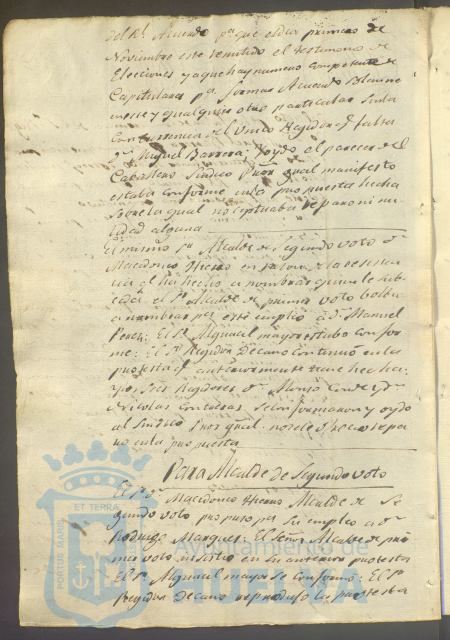 del R.l Acuerdo p.a que el dia primero de
Noviembre este remitido el testimonio de
Elecciones y aque hay numero competente de
Capitulares p.a formar Acuerdo
y qualquier otro particular sin la
concurrencia del Unico Regidor q.e falta
d.n Miguel Barrera, y oydo el parecer del
Caballero Sindico Pror. qual manifesto
estaba conforme en la propuesta hecha
sobre la qual no reparo ni nu
lidad alguna
El mismo S.or Alcalde de Segundo voto d.n
Macedonio Hierro en
ha hecho a nombrar quien le sub
el S.or Alcalde de primer voto
a nombrar p.a este empleo a d.n Manuel
Perez: El S.r Alguacil mayor estubo confor
me: El S.r Regidor Decano continuó en la
protesta q.e anteriormente tiene hecha:
Los Sres Regidores d.n Alonso Conde y d.n
Nicolas Contreras se conformaron y oydo
al Sindico Pror. qual no se le ofrecio repa
ro en la propuesta
Para Alcalde de Segundo voto
El S.or d.n Macedonio Hierro Alcalde de Se
gundo voto propuso p.a su empleo a d.n
Rodrigo Marques: El Señor Alcalde de pri
mer voto insistio en su anterior protesta
El S.r Alguacil mayor se conformó: El S.r
Regidor Decano reprodujo la protesta
ET TERRA
PORTUS MARIS
Ayuntamiento de